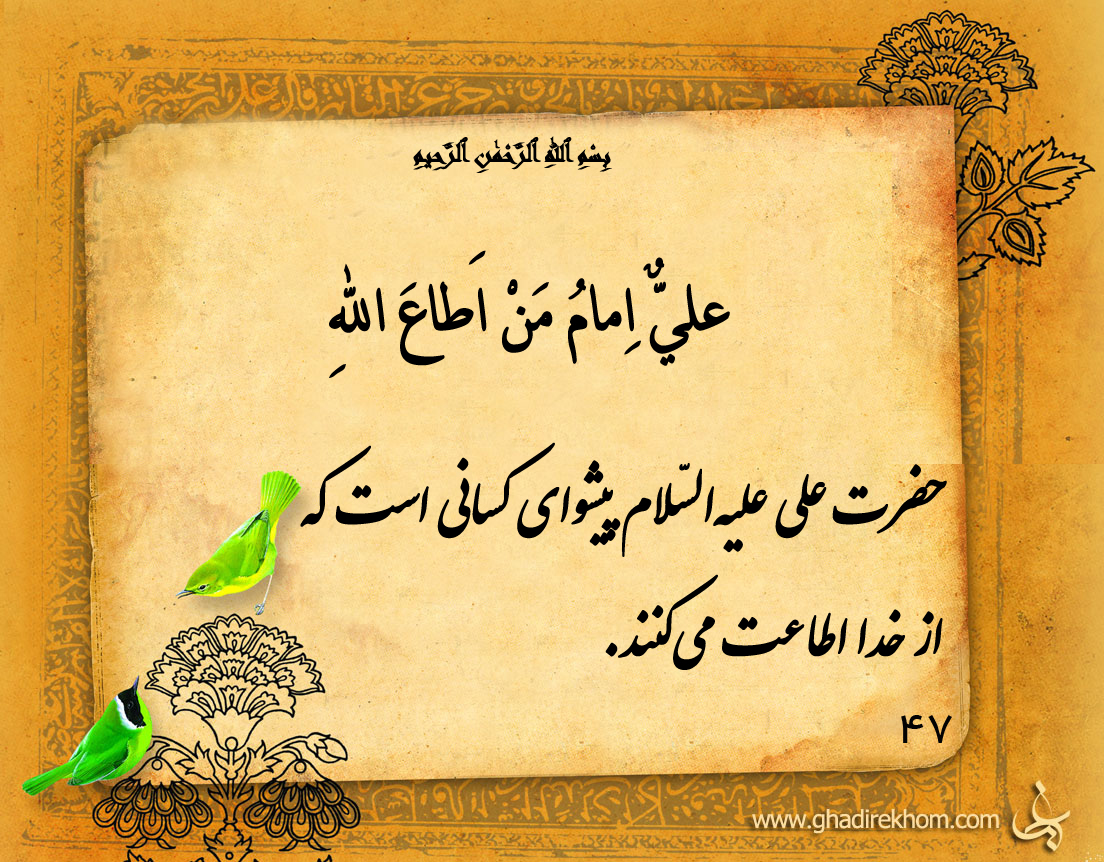 بِسْمِ اللهِ الرَّحْمٰنِ الرَّحِيمِ
عليٌّ اِمامُ مَنْ اَطاعَ اللهِ
حضرت علی علیه‌السّلام پیشوای کسانی است که
از خدا اطاعت می‌کنند.
۴۷
www.ghadirekhom.com